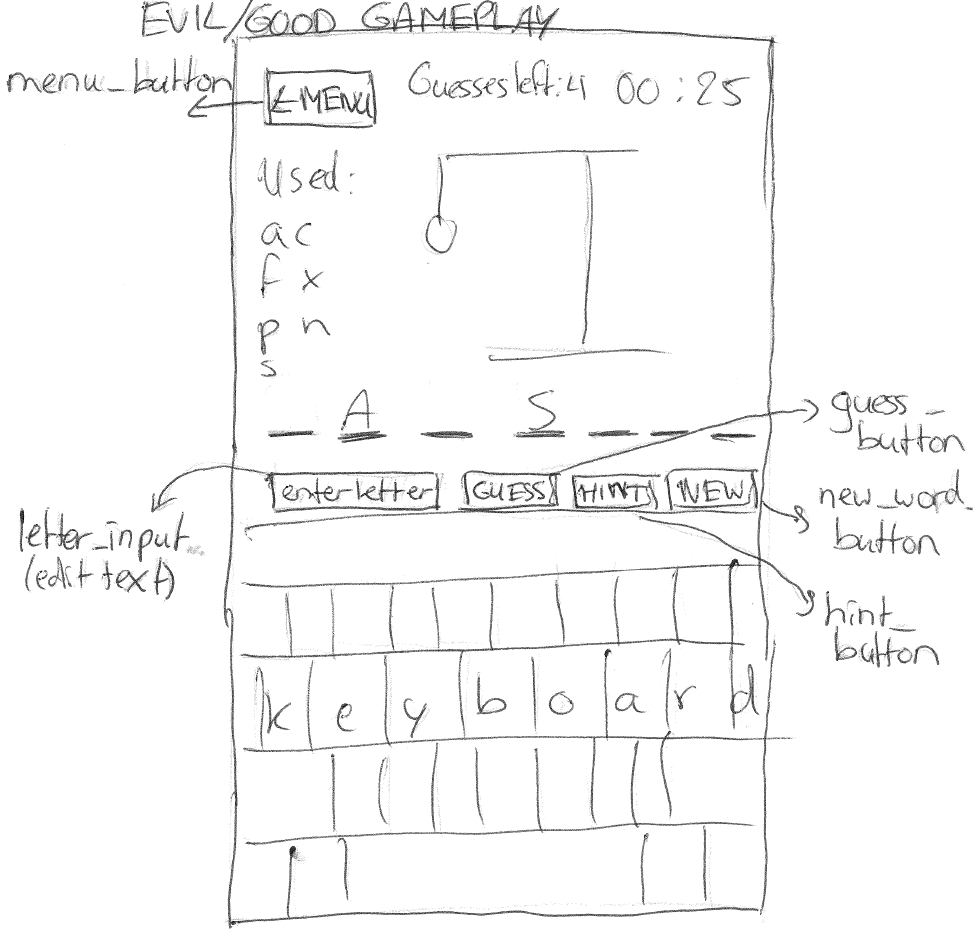 EVIL/GOOD GAMEPLAY
menu_button
←MENU
Guesses left: 4 00:25
Used:
a c
f x
p n
s
A S
guess_
button
enter letter GUESS HINT NEW
new_word_
button
letter_input
(edit text)
hint_
button
k e y b o a r d